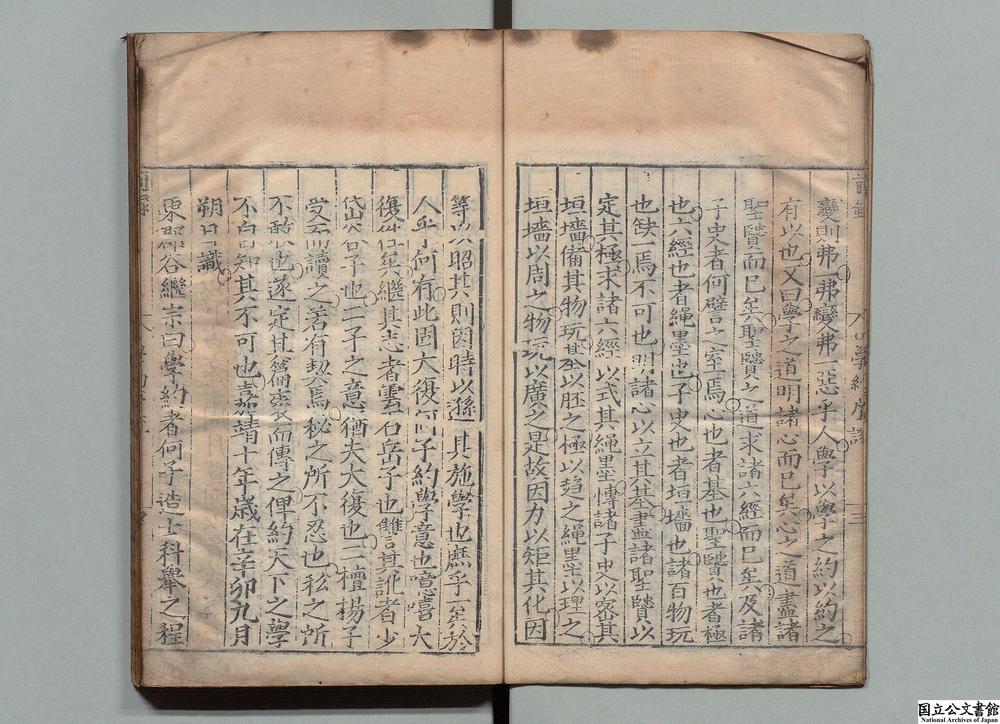 變則弗一弗變弗惡乎人學以學之約以約之
有以也又曰學之道明諸心而已矣心之道盡諸
聖賢而已矣聖賢之道求諸六經而已矣及諸
子史者何譬之室焉心也者基也聖賢也者極
也六經也者繩墨也子史也者垣墻也諸百物玩
也缺一焉不可也明諸心以立其基盡諸聖賢以
定其極求諸六經以式其繩墨博諸子史以密其
垣墻備其物玩基以胚之極以趋之繩墨以理之
垣墻以周之物玩以廣之是故因力以矩其化因
等以昭其則因時以遜其施學也庶乎一矣於
人乎何有此固大復何子約學意也噫嘻大
復往矣繼其志者雲石岳子也讎言其訛者少
岱谷子也二子之意猶夫大復也二檀楊子
受而讀之若有契焉秘之所不忍也私之所
不敢也遂定其篇袠而傳之俾約天下之學
不自知其不可也嘉靖十年歳在辛卯九月
朔日識
栗郡谷繼宗曰學約者何子造士科舉之程
国立公文書館
National Archives of Japan